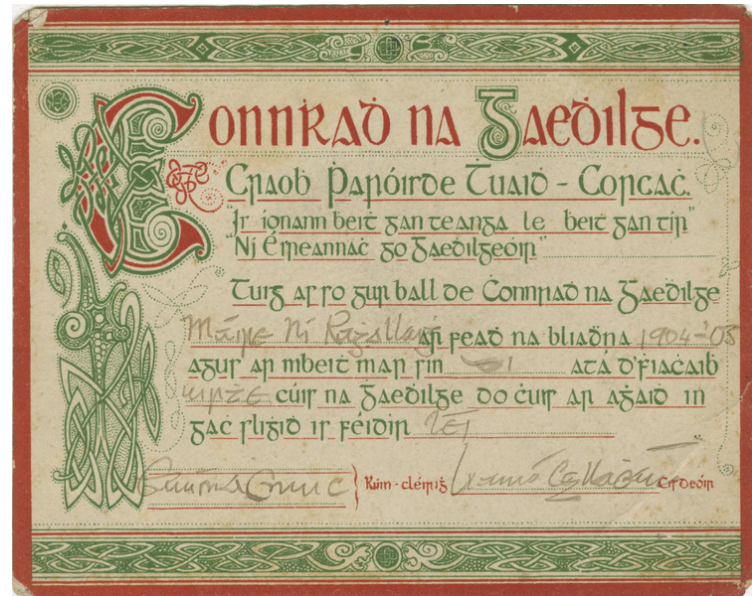 Connraḋ na Gaeḋilge.
Craoḃ Paróirde Ṫuaiḋ - Corcaċ.
"Ir ionann ḃeiṫ gan teanga le ḃeiṫ gan tír"
"Ní Éireannaċ go Gaeḋilgeóir"
Tuig ar ro gur ball de Ċonnraḋ na Gaeḋilge
Máire Ní Ragallaiġ ar feaḋ na bliaḋna 1904-'05
agur ar mbeiṫ mar rin sí atá d'ḟiaċaiḃ
uirṫe cúir na Gaeḋilge do ċur ar aġaiḋ in
gaċ rliġiḋ ir féidir léi
Rúin-cléiriġ Cirdeóir